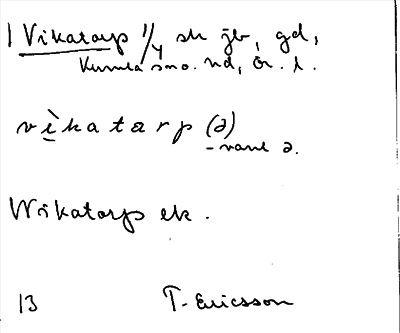 Vikatorp 1/4 sk jb, gd,
Kumla sno. hd, Ör. l.
vìkatàrp (ə)
- vanl ə.
Wikatorp ek.
13 T. Ericsson